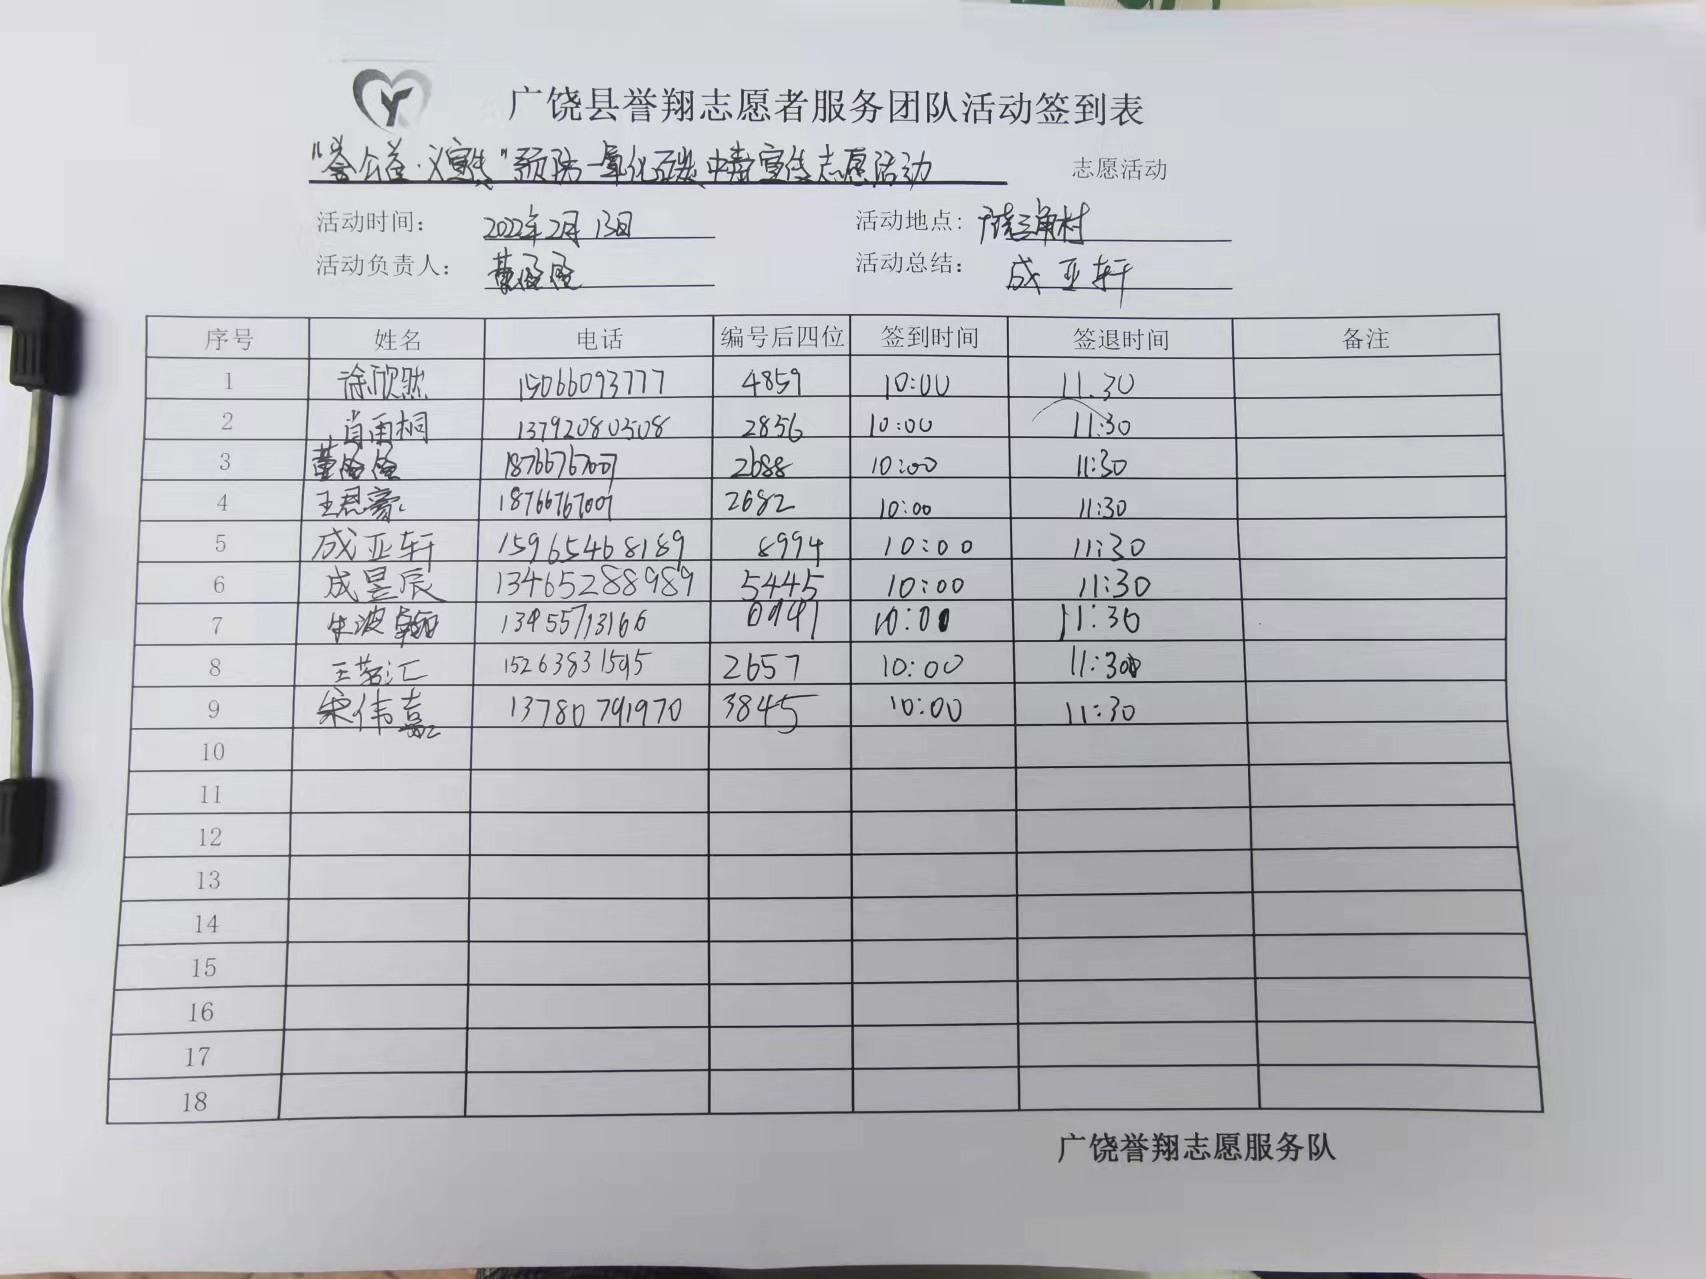 广饶县誉翔志愿者服务团队活动签到表
"誉公益·义宣传"预防一氧化碳中毒宣传志愿活动 志愿活动
活动时间： 2022年2月13日 活动地点： 广饶三角村
活动负责人： 董 活动总结： 成亚轩
序号 姓名 电话 编号后四位 签到时间 签退时间 备注
1 徐欣然 15066093777 4859 10:00 11.30
2 肖雨桐 13792080508 2856 10:00 11:30
3 董 18766767007 2688 10:00 11:30
4 王恩豪 18766767007 2682 10:00 11:30
5 成亚轩 15965468189 8994 10:00 11:30
6 成昱辰 13465288989 5445 10:00 11:30
7 13455713166 10:00 11:30
8 王茗汇 15263831595 2657 10:00 11:30
9 宋伟嘉 13780791970 3845 10:00 11:30
10
11
12
13
14
15
16
17
18
广饶誉翔志愿服务队